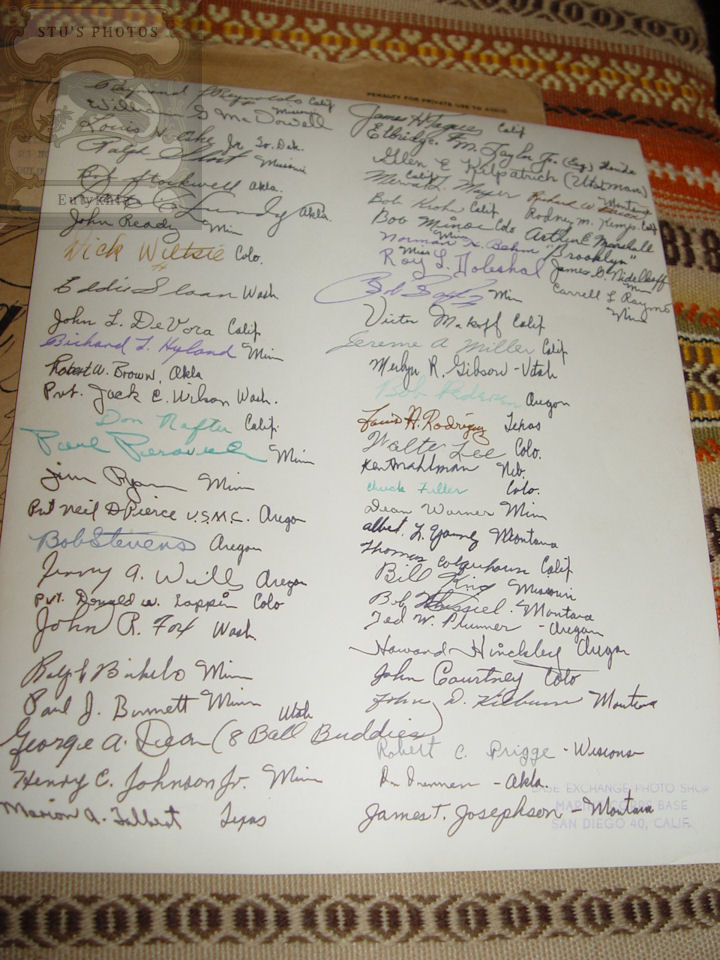 STU'S PHOTOS
Eutykhia
PENALTY FOR PRIVATE USE TO AVOID
Raymond J Reynolds Calif
William G McDowell Missouri
Louis Jr. So. Dak.
Ralph Missouri
Bob Stockwell Okla.
Okla.
John Ready Min
Dick Wiltsie Colo.
Eddie Sloan Wash
John L. DeVora Calif
Richard L. Hyland Minn
Robert W. Brown, Okla
Pvt. Jack C. Wilson Wash.
Don Nafty Calif.
Paul Minn
Jim Ryan Minn
Pvt Neil D Pierce U.S.M.C. Oregon
Bob Stevens Oregon
Jerry A. Will Oregon
Pvt. Donald W. Lappin Colo
John R. Fox Wash.
Ralph Minn
Paul J. Burnett Minn
George A. Dean (8 Ball Buddies) Utah
Henry C. Johnson Jr. Minn
Marion A. Talbert Texas
James H. Calif
Elbridge M. Taylor Jr. (Esq) Florida
Glen E Kilpatrick (Utahman)
Calif Richard W. Montana
Bob Calif Rodney M. Kemp Calif
Bob Minor Colo Arthur E. Marshall
Norman L. Minn "Brooklyn"
Roy L. Holeshal Miss James G. Nidelkoff
Min Carrell L Raymo Minn
Victor Makoff Calif
Jereme A Miller Calif
Merlyn R. Gibson - Utah
Bob Pedersen Oregon
Louis H. Rodriguez Texas
Walter Lee Colo.
Ken Mahlman Neb.
Chuck Filler Colo.
Dean Warner Minn
Albert L. Young Montana
Thomas Colquhoun Calif
Bill King Missouri
Bob Montana
Ted W. Plumer - Oregon
Howard Hinckley Oregon
John Courtney Colo
John D. Kilburn Montana
Robert C. Prigge - Wisconsin
- Okla.
James T. Josephson - Montana
BASE EXCHANGE PHOTO SHOP
MARINE CORPS BASE
SAN DIEGO 40, CALIF.